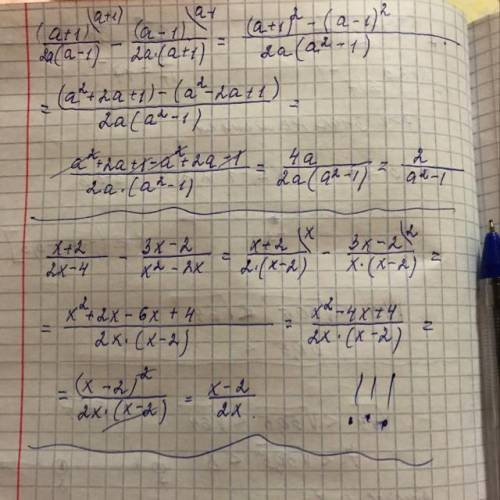 (a+1)\(a+1) / 2a(a-1) - (a-1)\a-1 / 2a·(a+1) = ((a+1)² - (a-1)²) / 2a(a²-1)
= ((a²+2a+1) - (a²-2a+1)) / 2a(a²-1) =
(a²+2a+1-a²+2a-1) / 2a·(a²-1) = 4a / 2a(a²-1) = 2 / a²-1
(x+2) / (2x-4) - (3x-2) / (x²-2x) = (x+2)\x / 2·(x-2) - (3x-2)\2 / x·(x-2) =
= (x²+2x-6x+4) / 2x·(x-2) = (x²-4x+4) / 2x·(x-2) =
= (x-2)² / 2x·(x-2) = (x-2) / 2x. !!!